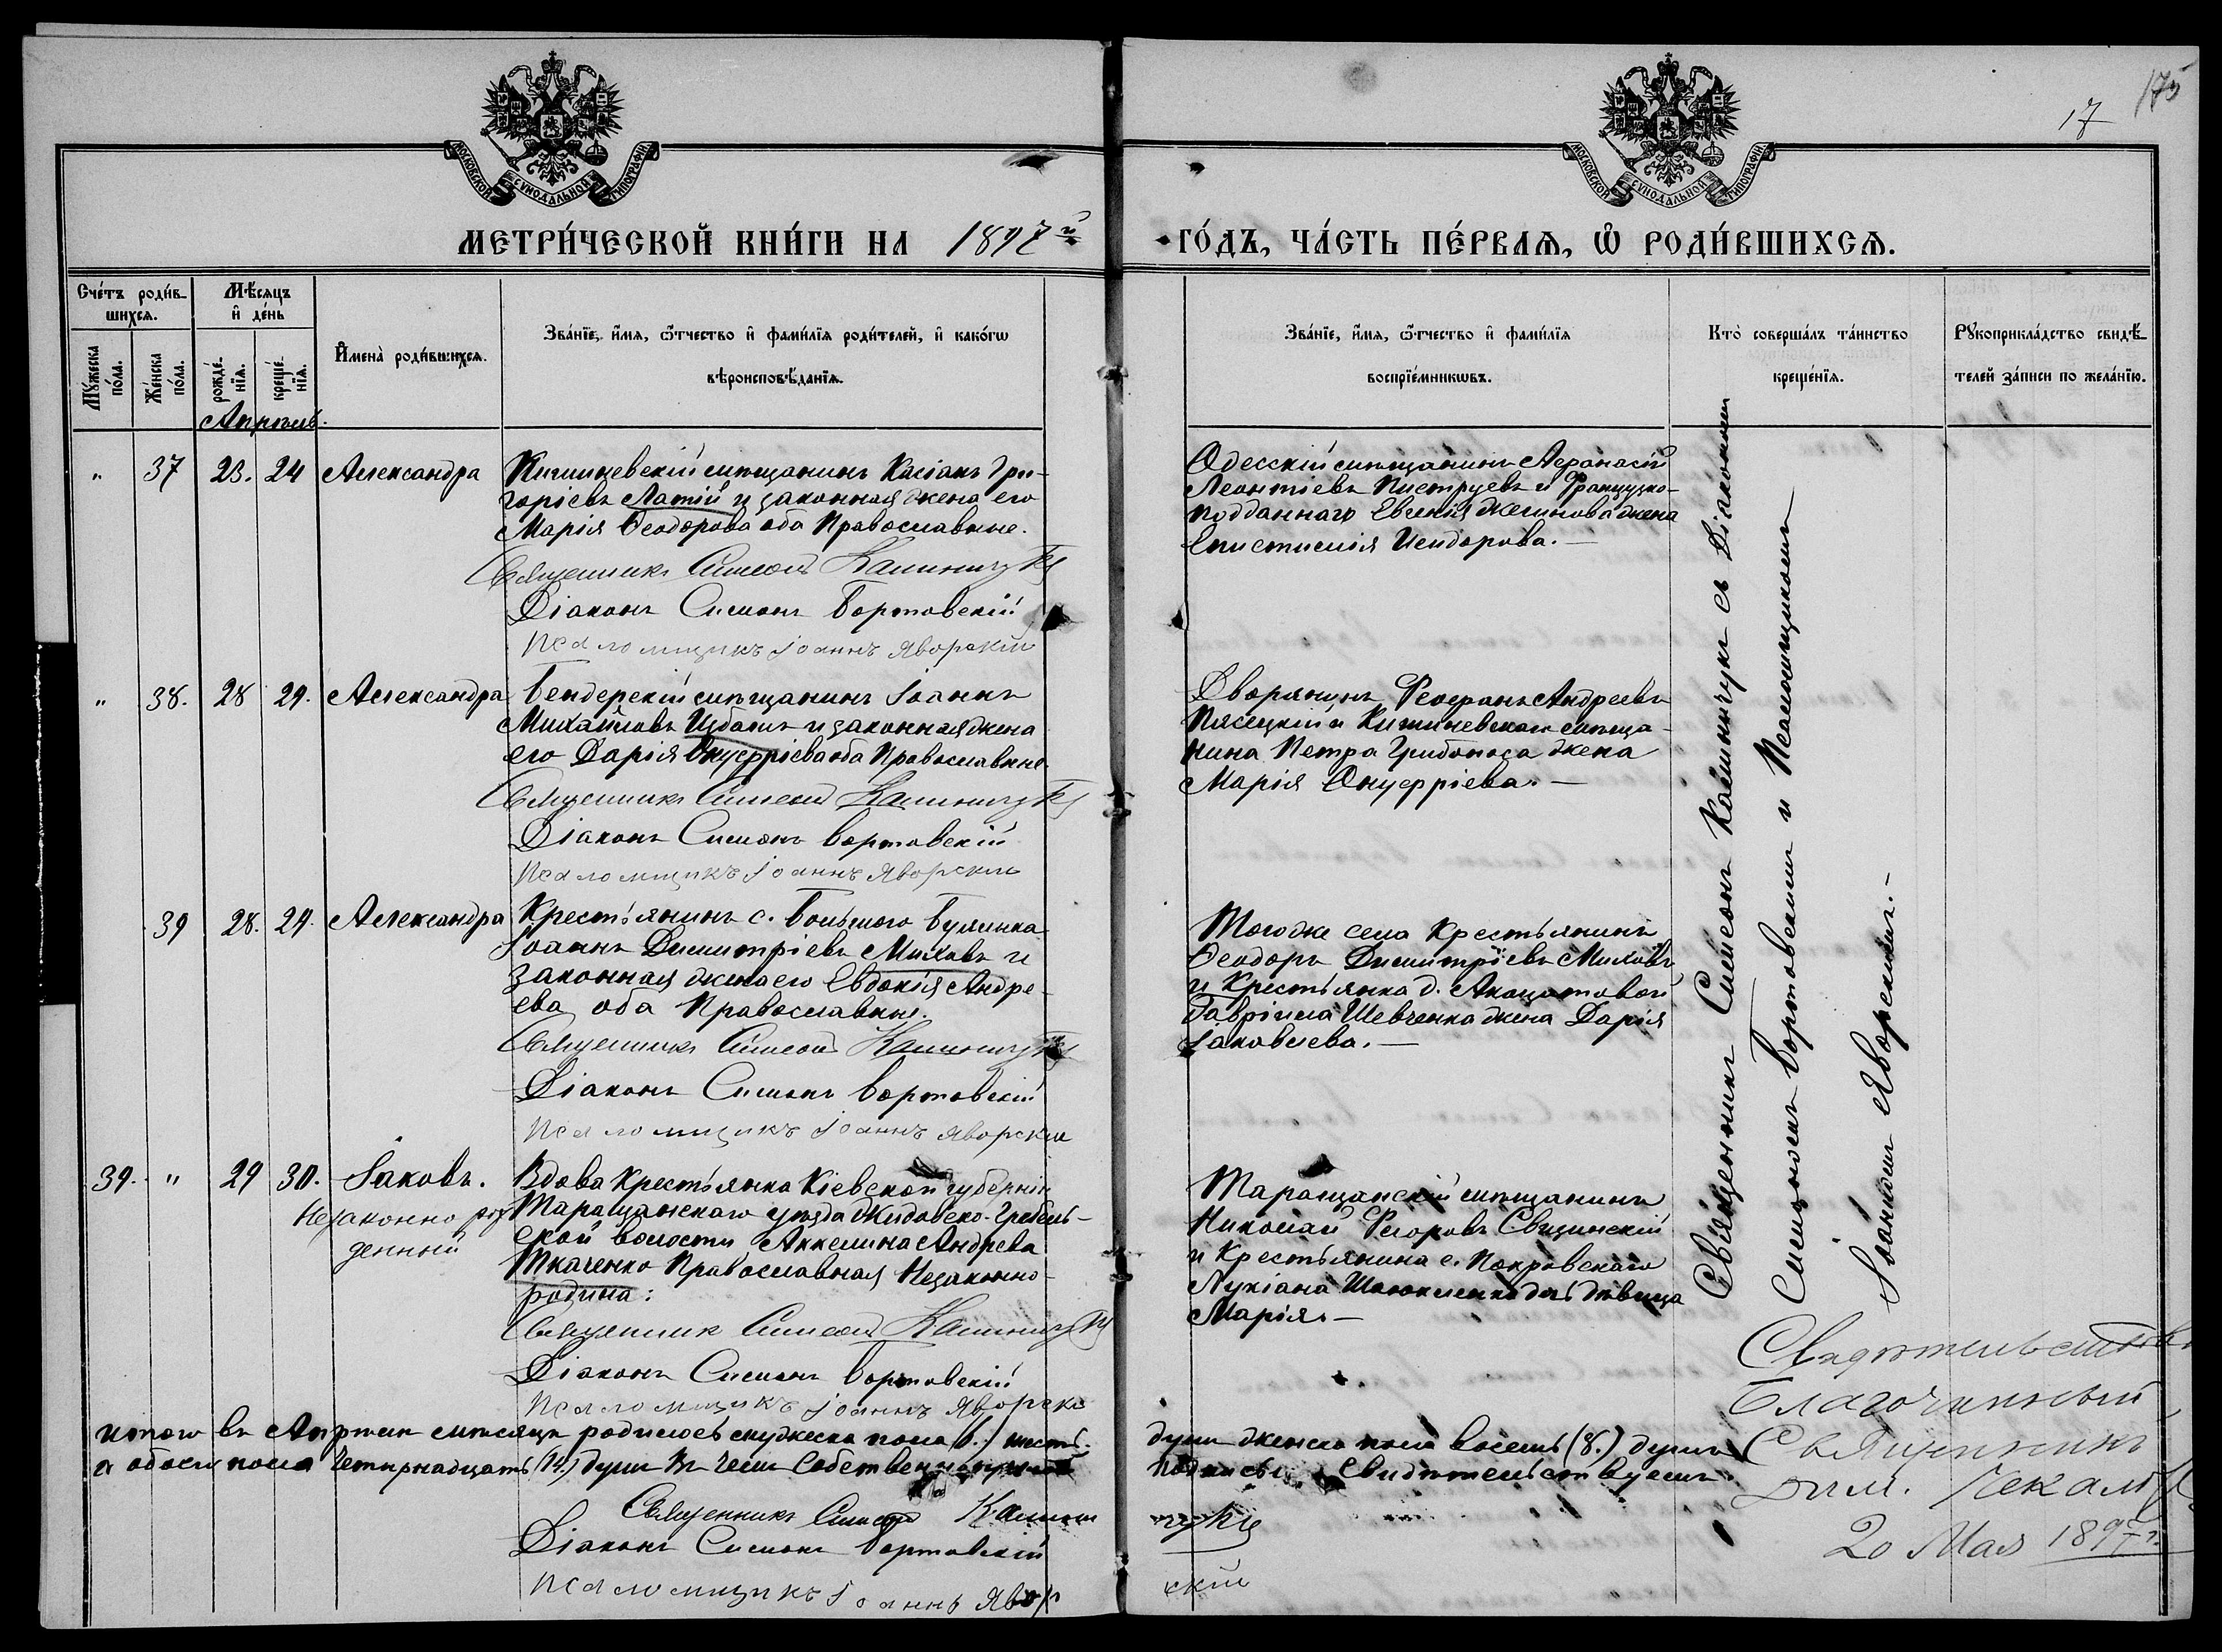 17
175
МОСКОВСКОЙ СѴНОДАЛЬНОЙ ТИПОГРАФІИ
МОСКОВСКОЙ СѴНОДАЛЬНОЙ ТИПОГРАФІИ
МЕТРИ́ЧЕСКОЙ КНИ́ГИ НА 1897й
ГО́ДЪ, ЧА́СТЬ ПЕ́РВАѦ, Ѡ҆ РОДИ́ВШИХСѦ.
Сче́тъ роди́в-
шихсѧ.
Мꙋ́жеска по́ла.
Же́нска по́ла.
Мѣ́сѧцъ
и҆ де́нь
рожде́-
нїѧ.
креще́-
нїѧ.
И҆мена̀ роди́вшихсѧ.
Зва́нїе, и҆́мѧ, ѻ҆́тчество и҆ фами́лїѧ роди́телей, и҆ како́гѡ
вѣроисповѣ́данїѧ.
Зва́нїе, и҆́мѧ, ѻ҆́тчество и҆ фами́лїѧ
воспрїе́мникѡвъ.
Кто̀ соверша́лъ та́инство
креще́нїѧ.
Рꙋкоприкла́дство свидѣ́-
телей за́писи по жела́нїю.
Апрѣль.
" 37 23. 24 Александра
Кишиневскій мѣщанинъ Касіанъ Гри-
горіевъ Латій и законная жена его
Марія Ѳеодорова оба Православные.
Священникъ Симеонъ Калинчукъ
Діаконъ Симонъ Бортовскій
Псаломщикъ Іоаннъ Яворскій
Одесскій мѣщанинъ Аѳанасій
Леонтіевъ Пиструевъ и Французко-
подданнаго Евгенія жена
Епистимія Исидорова.—
" 38. 28 29. Александра
Бендерскій мѣщанинъ Іоаннъ
Михайловъ и законная жена
его Дарія Онуфріева оба Православные.
Священникъ Симеонъ Калинчукъ
Діаконъ Симонъ Бортовскій
Псаломщикъ Іоаннъ Яворскій
Дворянинъ Ѳеофанъ Андреевъ
Пясецкій и Кишиневскаго мѣща-
нина Петра Грибоноса жена
Марія Онуфріева.—
39 28. 29. Александра
Крестьянинъ с. Большого Буялыка
Іоаннъ Димитріевъ Миховъ и
законная жена его Евдокія Андре-
ева оба Православные.
Священникъ Симеонъ Калинчукъ
Діаконъ Симонъ Бортовскій
Псаломщикъ Іоаннъ Яворскій
Тогоже села Крестьянинъ
Ѳеодоръ Димитріевъ Миховъ
и Крестьянка д. Акацатовой
Гавріила Шевченка жена Дарія
Іаковлева.—
39. " 29 30. Іаковъ.
Незаконно рож
денный
Вдова Крестьянка Кіевской губерніи
Таращанскаго уѣзда Жидовско-Гребель-
ской волости Акилина Андреева
Ткаченко Православная Незаконно-
родила:
Священник Симеонъ Калинчукъ
Діаконъ Симонъ Бортовскій
Псаломщикъ Іоаннъ Яворскі
Таращанскій мѣщанинъ
Николай Ѳеодоровъ Свѣцинскій
и Крестьянина с. Покровскаго
Лукіана дочь дѣвица
Марія.—
Священникъ Симеонъ Калинчукъ съ Діакономъ
Симономъ Бортовскимъ и Псаломщикомъ
Іоанномъ Яворскимъ.—
итого въ Апрѣлѣ мѣсяцѣ родилось мужеска пола (6.) шесть.
души женска пола восемь (8.) душъ
а обоего пола четырнадцать (14.) душъ Въ чемъ Собственноручн
подписью Свидѣтельствуемъ
Священникъ Симеонъ Калин
чукъ
Діаконъ Симонъ Бортовскій
Псаломщикъ Іоаннъ Явор
скій
Свидѣтельствовалъ
Благочинный
Священникъ
Дим.
20 Мая 1897 г.